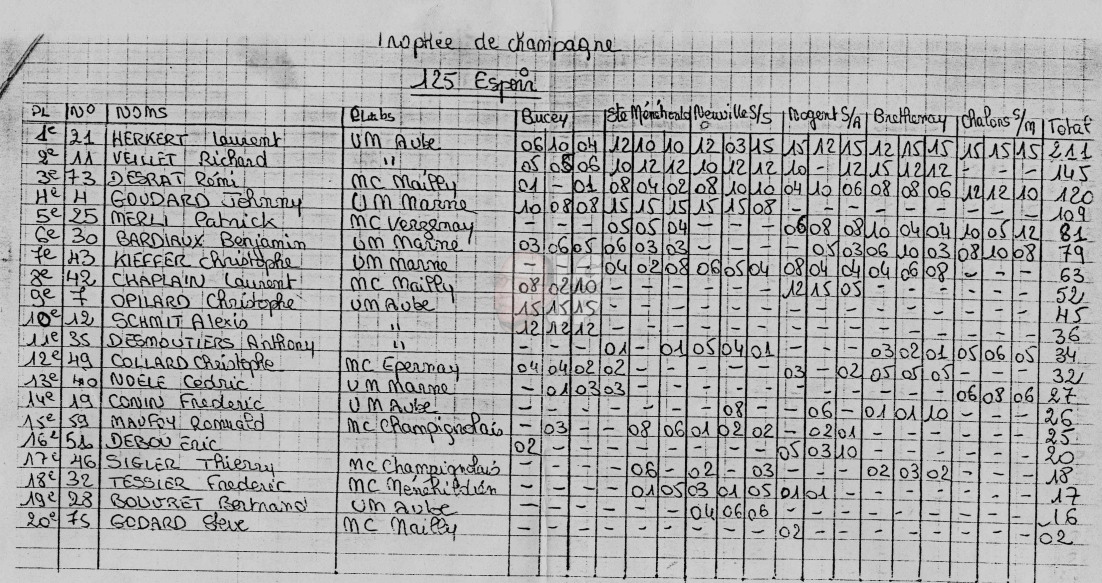 Trophée de champagne
125 Espoir
PL N° NOMS Clubs Bucey Ste Ménéhould Neuville S/S Nogent S/A Brethenay Chalons S/M Total
1e 21 HERKERT Laurent UM Aube 06 10 04 12 10 10 12 03 15 15 12 15 12 15 15 15 15 15 211
2e 11 VEILLET Richard '' 05 05 06 10 12 12 10 12 12 10 - 12 15 12 12 - - - 145
3e 73 DESRAT Rémi MC Mailly 01 - 01 08 04 02 08 10 10 04 10 06 08 08 06 12 12 10 120
4e 4 GOUDARD Johnny UM Marne 10 08 08 15 15 15 15 15 08 - - - - - - - - - 109
5e 25 MERLI Patrick MC Vergenay - - - 05 05 04 - - - 06 08 08 10 04 04 10 05 12 81
6e 30 BARDIAUX Benjamin UM Marne 03 06 05 06 03 03 - - - - 05 03 06 10 03 08 10 08 79
7e 43 KIEFFER Christophe UM Marne - - - 04 02 08 06 05 04 08 04 04 04 06 08 - - - 63
8e 42 CHAPLAIN Laurent MC Mailly 08 02 10 - - - - - - 12 15 05 - - - - - - 52
9e 7 OPILARD Christophe UM Aube 15 15 15 - - - - - - - - - - - - - - - 45
10e 12 SCHMIT Alexis '' 12 12 12 - - - - - - - - - - - - - - - 36
11e 35 DESMOUTIERS Anthony - - - 01 - 01 05 04 01 - - - 03 02 01 05 06 05 34
12e 49 COLLARD Christophe MC Epernay 04 04 02 02 - - - - - 03 - 02 05 05 05 - - - 32
13e 40 NOËLE Cédric UM Marne - 01 03 03 - - - - - - - - - - - 06 08 06 27
14e 19 CONIN Frederic UM Aube - - - - - - - 08 - - 06 - 01 01 10 - - - 26
15e 59 MAUFOY Romuald MC Champignolais - 03 - - 08 06 01 02 02 - 02 01 - - - - - - 25
16e 51 DEBOU Eric 02 - - - - - - - - 05 03 10 - - - - - - 20
17e 46 SIGLER Thierry MC Champignolais - - - - 06 - 02 - 03 - - - 02 03 02 - - - 18
18e 32 TESSIER Frederic MC Ménéhildien - - - - 01 05 03 01 05 01 01 - - - - - - - 17
19e 28 BOUVRET Bertrand UM Aube - - - - - - 04 06 06 - - - - - - - - - 16
20e 75 GODARD Steve MC Mailly - - - - - - - - - 02 - - - - - - - - 02